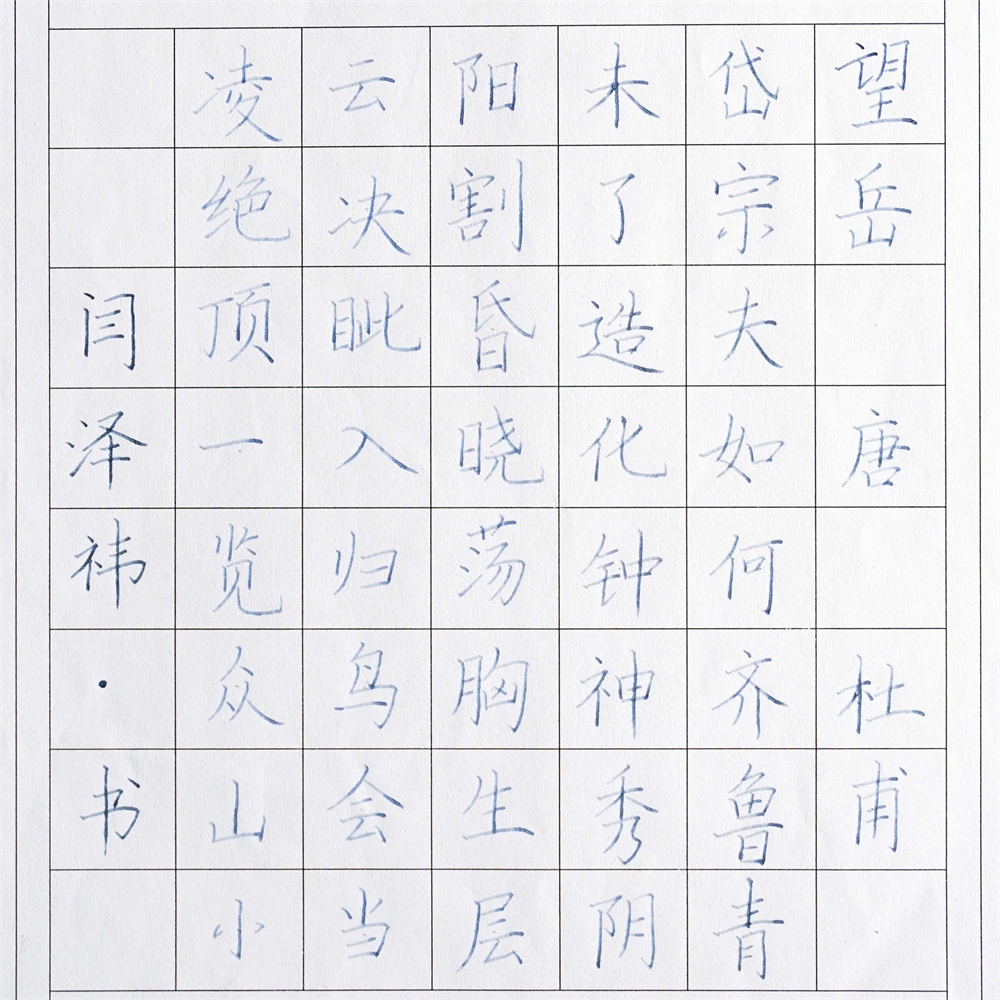 望岳 唐 杜甫
岱宗夫如何齐鲁青
未了造化钟神秀阴
阳割昏晓荡胸生层
云决眦入归鸟会当
凌绝顶一览众山小
闫泽祎·书